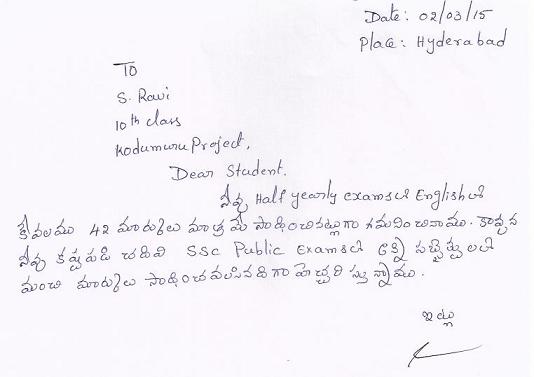 Date: 02/03/15
Place: Hyderabad
To
S. Ravi
10th class
Kodumuru Project,
Dear Student.
నీవు Half yearly examsలో Englishలో
కేవలము 42 మార్కులు మాత్రమే సాధించినట్లుగా గమనించినాము. కావున
నీవు కష్టపడి చదివి SSC Public Examsలో అన్ని సబ్జెక్టులలో
మంచి మార్కులు సాధించవలసినదిగా హెచ్చరిస్తున్నాము.
ఇట్లు